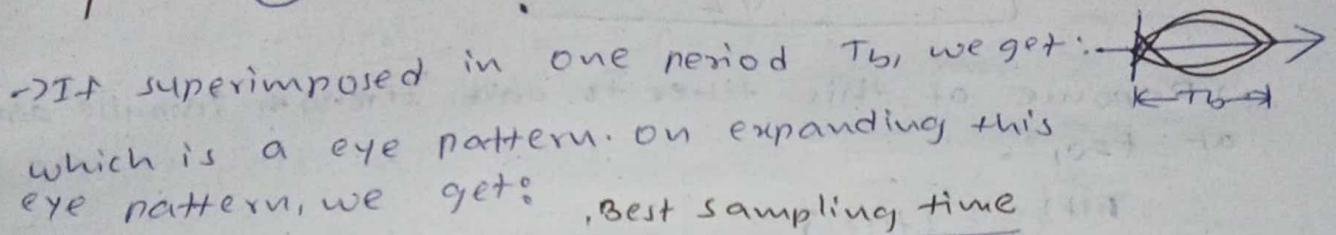 ->If superimposed in one period Tb, we get:-
K-Tb->|
which is a eye pattern. on expanding this
eye pattern, we get:
Best sampling time